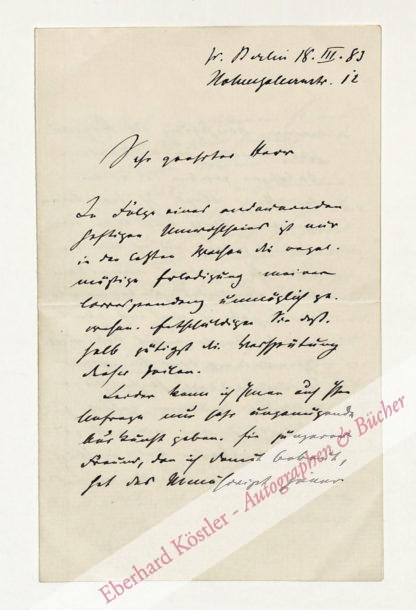 W. Berlin 18. III. 83
Hohenzollernstr. 12
Sehr geehrter Herr
In Folge eines andauernden
heftigen Unwohlseins ist mir
in den letzten Wochen die regel-
mäßige Erledigung meiner
Correspondenz unmöglich ge-
wesen. Entschuldigen Sie deß-
halb gütigst die Verspätung
dieser Zeilen.
Leider kann ich Ihnen auf Ihre
Anfrage nur sehr ungenügende
Auskunft geben. Ein jüngerer
Freund, den ich damit betraut,
hat das Manuscript
Eberhard Köstler - Autographen & Bücher